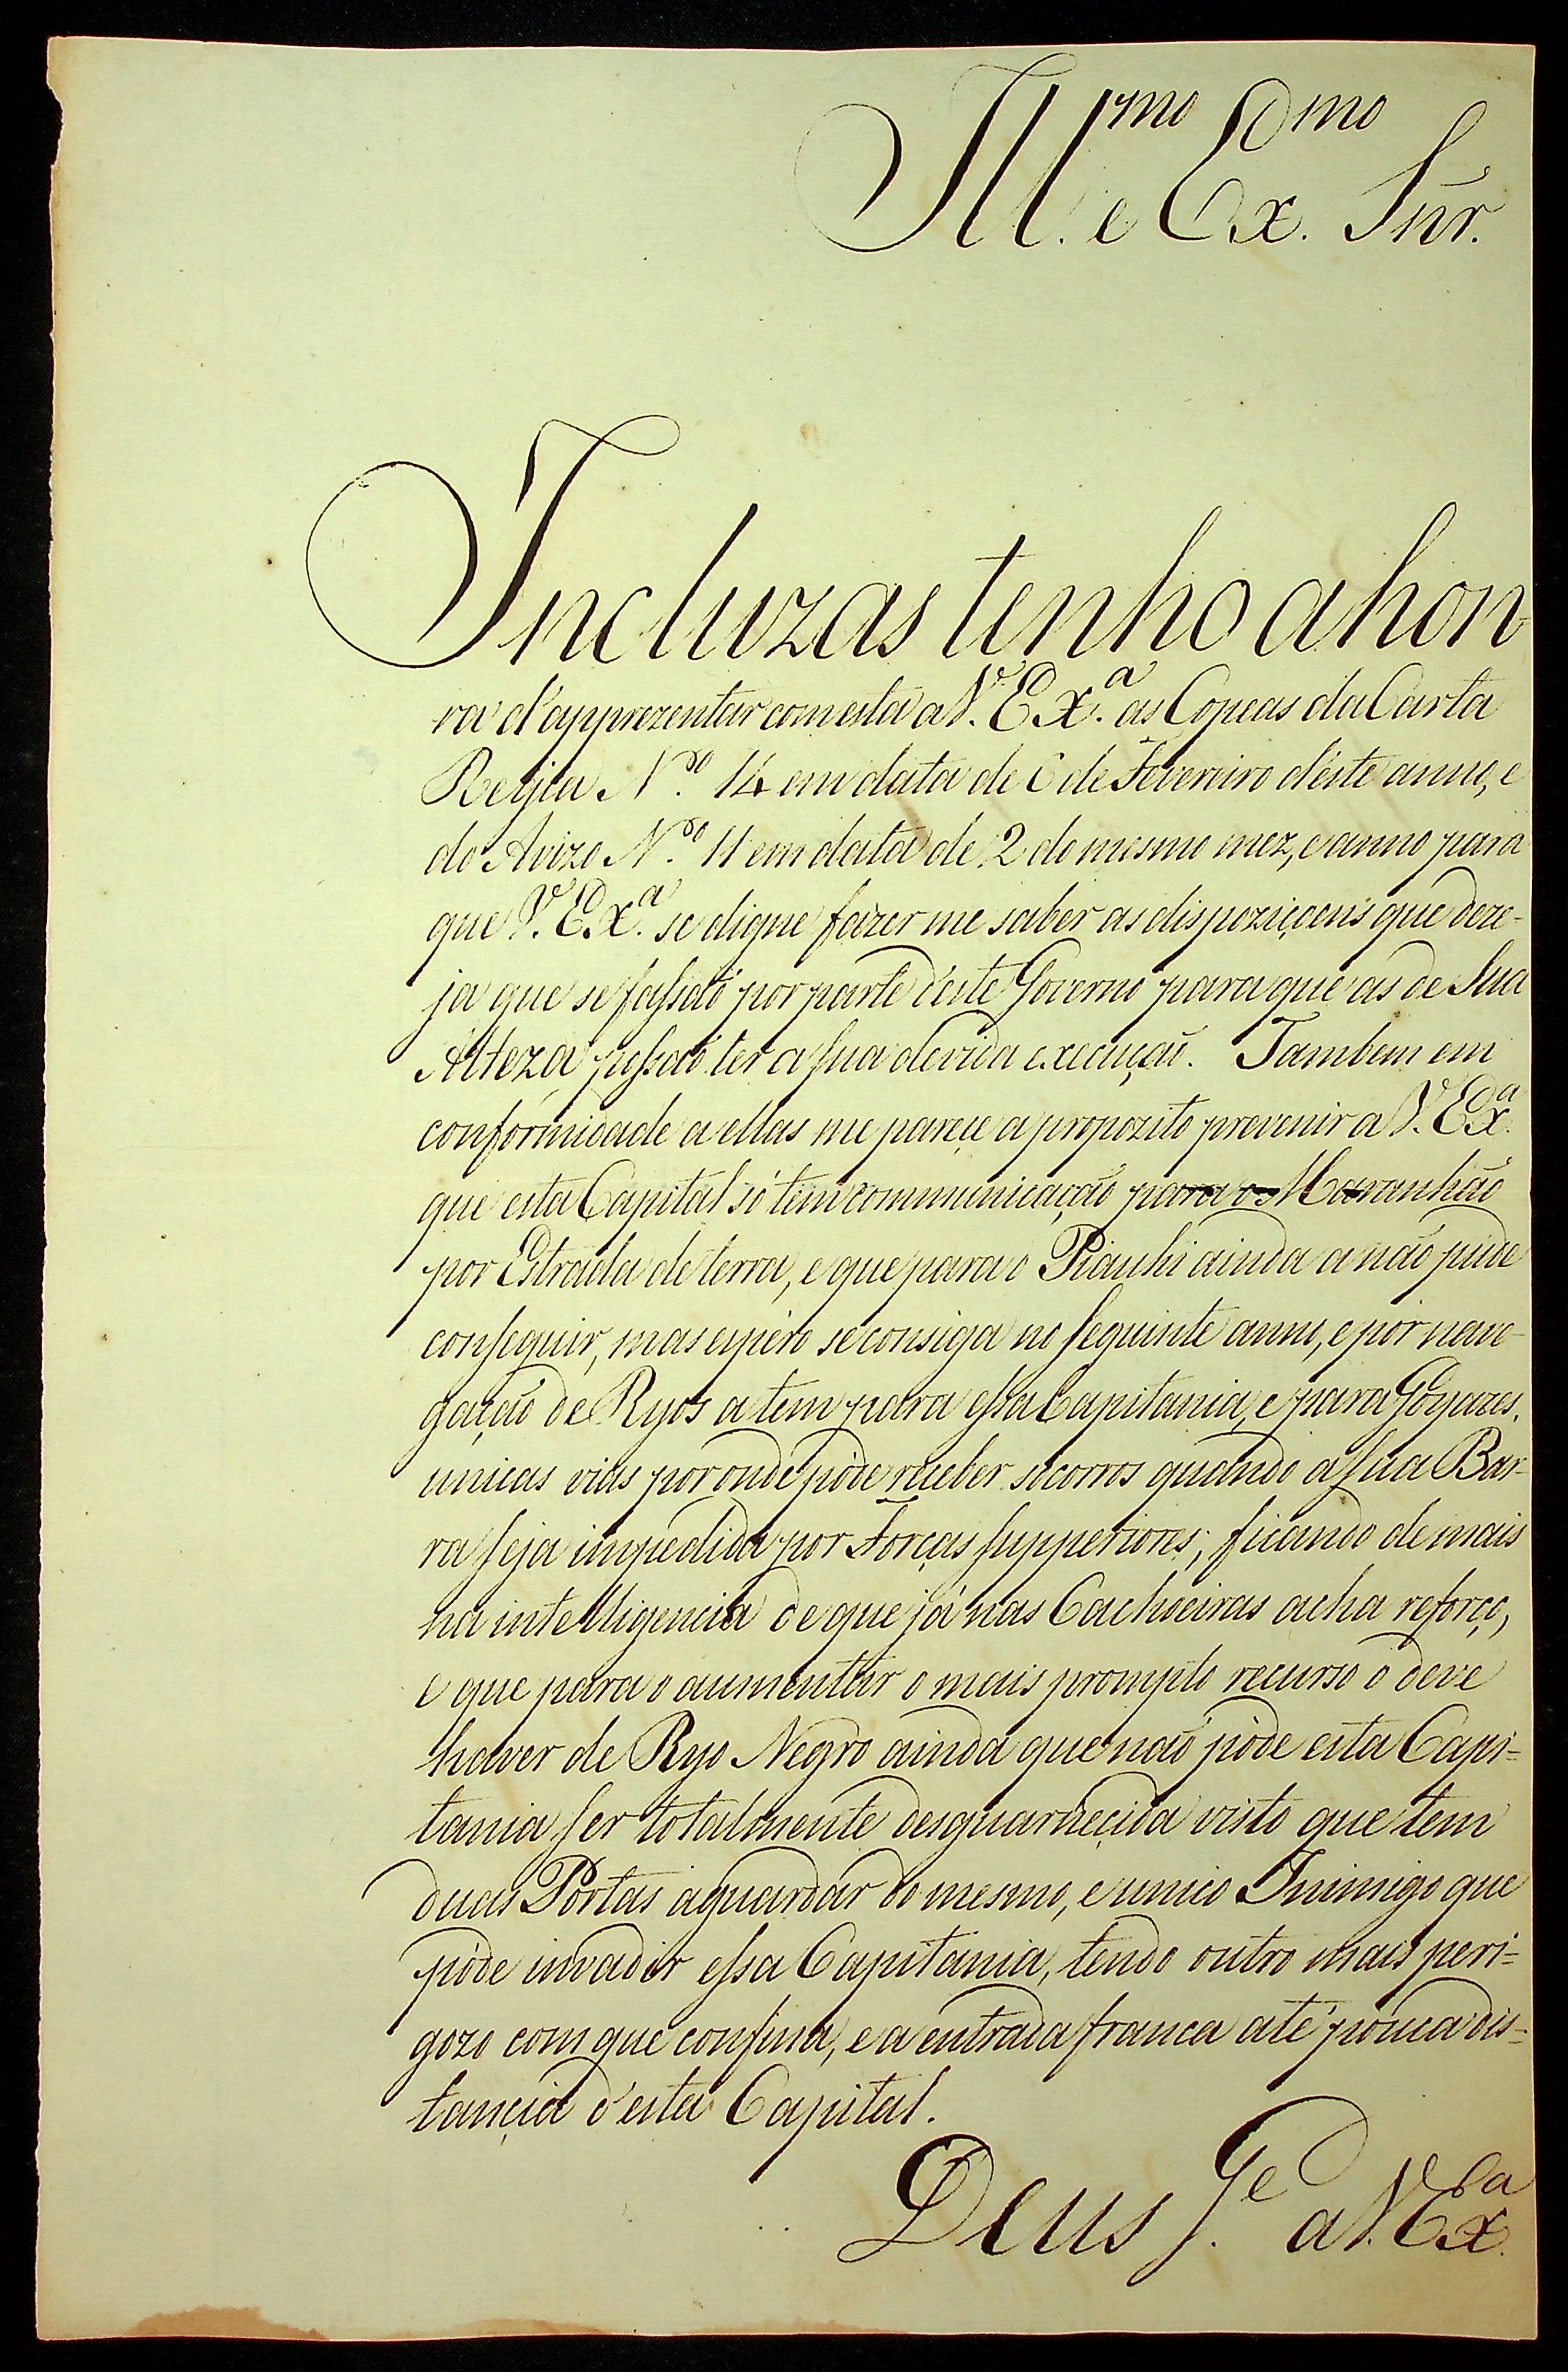 Ill.mo e Ex.mo Snr.
Incluzas tenho a hon
ra d'apprezentar com esta a V. Ex.a as Copeas da Carta
Regia N.ro 14 em data de 6 de Fevereiro d'éste anno, e
do Avizo N.ro 11 em data de 2 do mesmo mez, e anno para
que V. Ex.a se digne fazer me saber as dispoziçoens que deze-
ja que se fassaõ por parte d'éste Governo para que as de Sua
Alteza possaõ ter a sua devida execuçaõ. Tambem em
conformidade a ellas me pareçe a propozito prevenir a V. Ex.a
que esta Capital só tem communicaçaõ para o Maranhaõ
por Estrada de terra, e que para o Piauhi ainda a naõ pude
conseguir, mas espéro se consiga no seguinte anno, e por nave-
gaçaõ de Ryos a tem para essa Capitania, e para Goyazes,
unicas vias por onde póde receber socorros quando a sua Bar-
ra seja impedida por Forças supperiores; ficando de mais
na intelligencia de que já nas Cachoeiras acha reforço,
e que para o aumentar o mais prompto recurso o deve
haver de Ryo Negro ainda que naõ póde esta Capi=
tania ser totalmente desguarneçida visto que tem
duas Portas a guardar do mesmo, e unico Inimigo que
póde invadir essa Capitania, tendo outro mais peri=
gozo com que confina, e a entrada franca até pouca dis=
tançia d'esta Capital.
Deus G.e a V. Ex.a